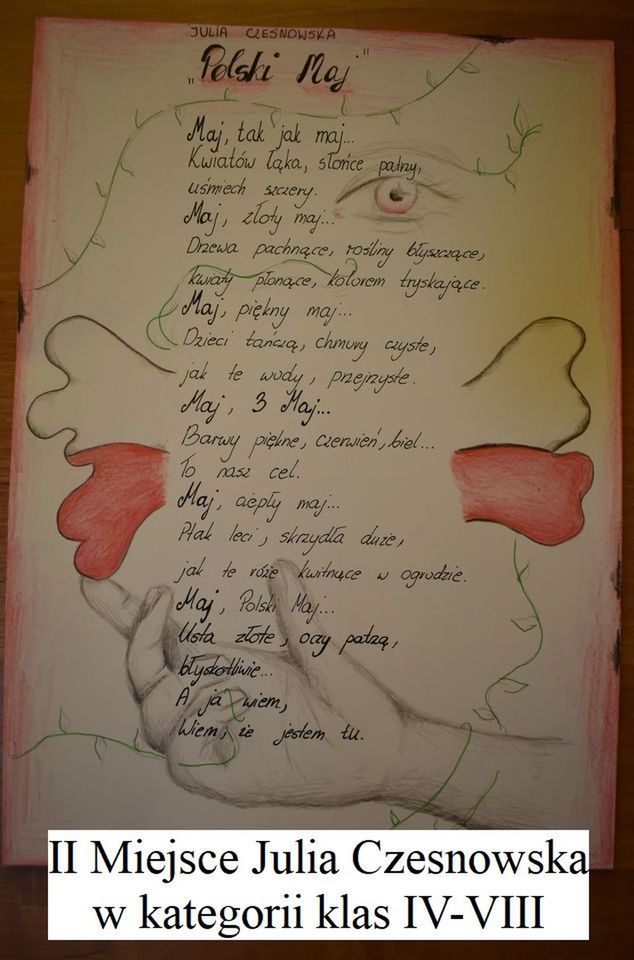 JULIA CZESNOWSKA
„Polski Maj"
Maj, tak jak maj...
Kwiatów łąka, słońce patrzy,
uśmiech szczery.
Maj, złoty maj...
Drzewa pachnące, rośliny błyszczące,
kwiaty płonące, kolorem tryskające.
Maj, piękny maj...
Dzieci tańczą, chmury czyste,
jak te wody, przejrzyste.
Maj, 3 Maj...
Barwy piękne, czerwień, biel...
To nasz cel.
Maj, ciepły maj...
Ptak leci, skrzydła duże,
jak te róże kwitnące w ogrodzie.
Maj, Polski Maj...
Usta złote, oczy patrzą,
błyskotliwie...
A ja wiem,
Wiem, że jestem tu.
II Miejsce Julia Czesnowska
w kategorii klas IV-VIII